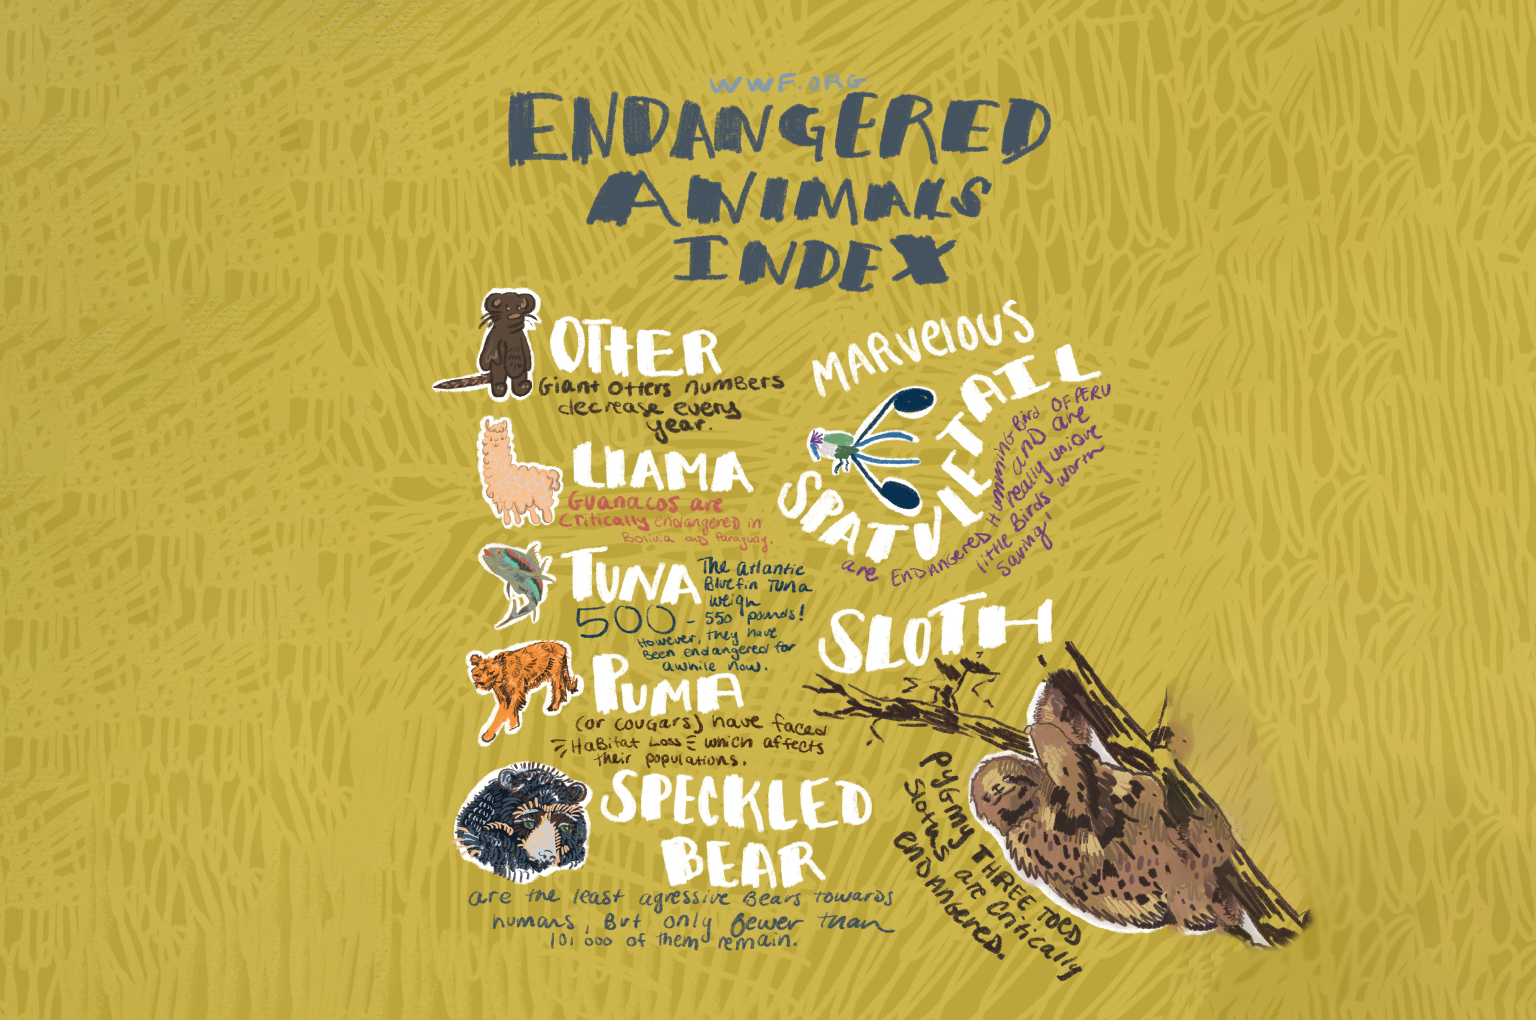 WWF.ORG
ENDANGERED
ANIMALS
INDEX
OTTER
Giant Otters numbers
decrease every
year.
LLAMA
Guanacos are
Critically endangered in
Bolivia and Paraguay.
TUNA
The atlantic
Bluefin Tuna
weigh
500 - 550 pounds!
However, they have
Been endangered for
awhile now.
PUMA
(or cougars) have faced
Habitat Loss which affects
their populations.
SPECKLED
BEAR
are the least agressive Bears towards
humans, But only fewer than
10,000 of them remain.
MARVELOUS
SPATULETAIL
are ENDANGERED HUMMINGBIRD OF PERU
and are
really unique
little Birds worth
Saving!
SLOTH
PYGMY THREE TOED
Sloths are critically
ENDANGERED.